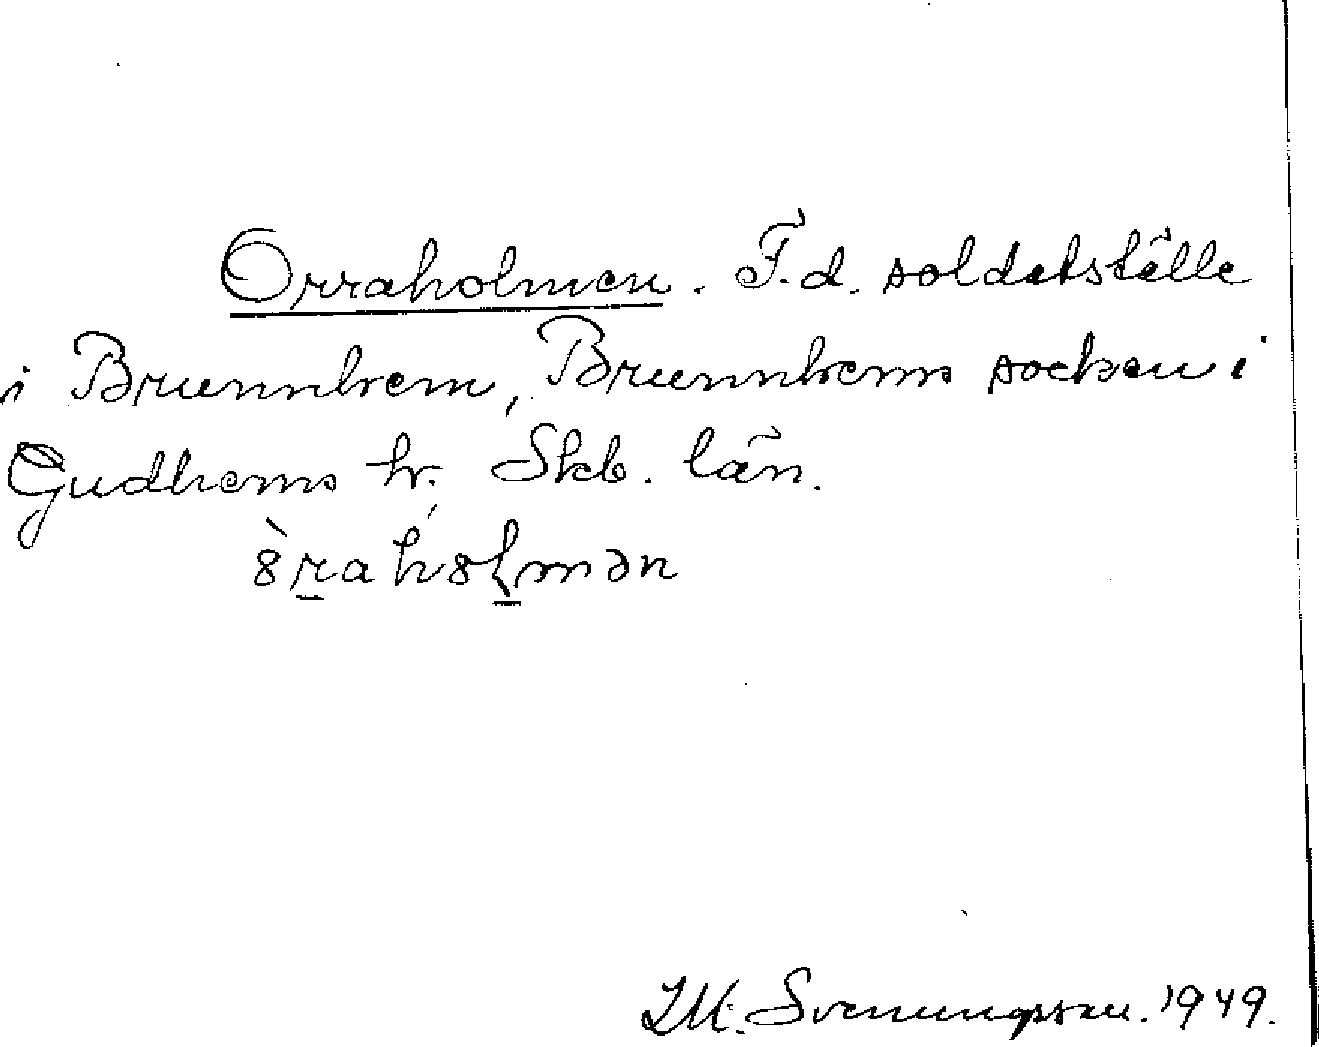 Orraholmen. F.d. soldatställe
i Brunnhem, Brunnhems socken i
Gudhems hr. Skb. län.
M. Svenungsson. 1949.